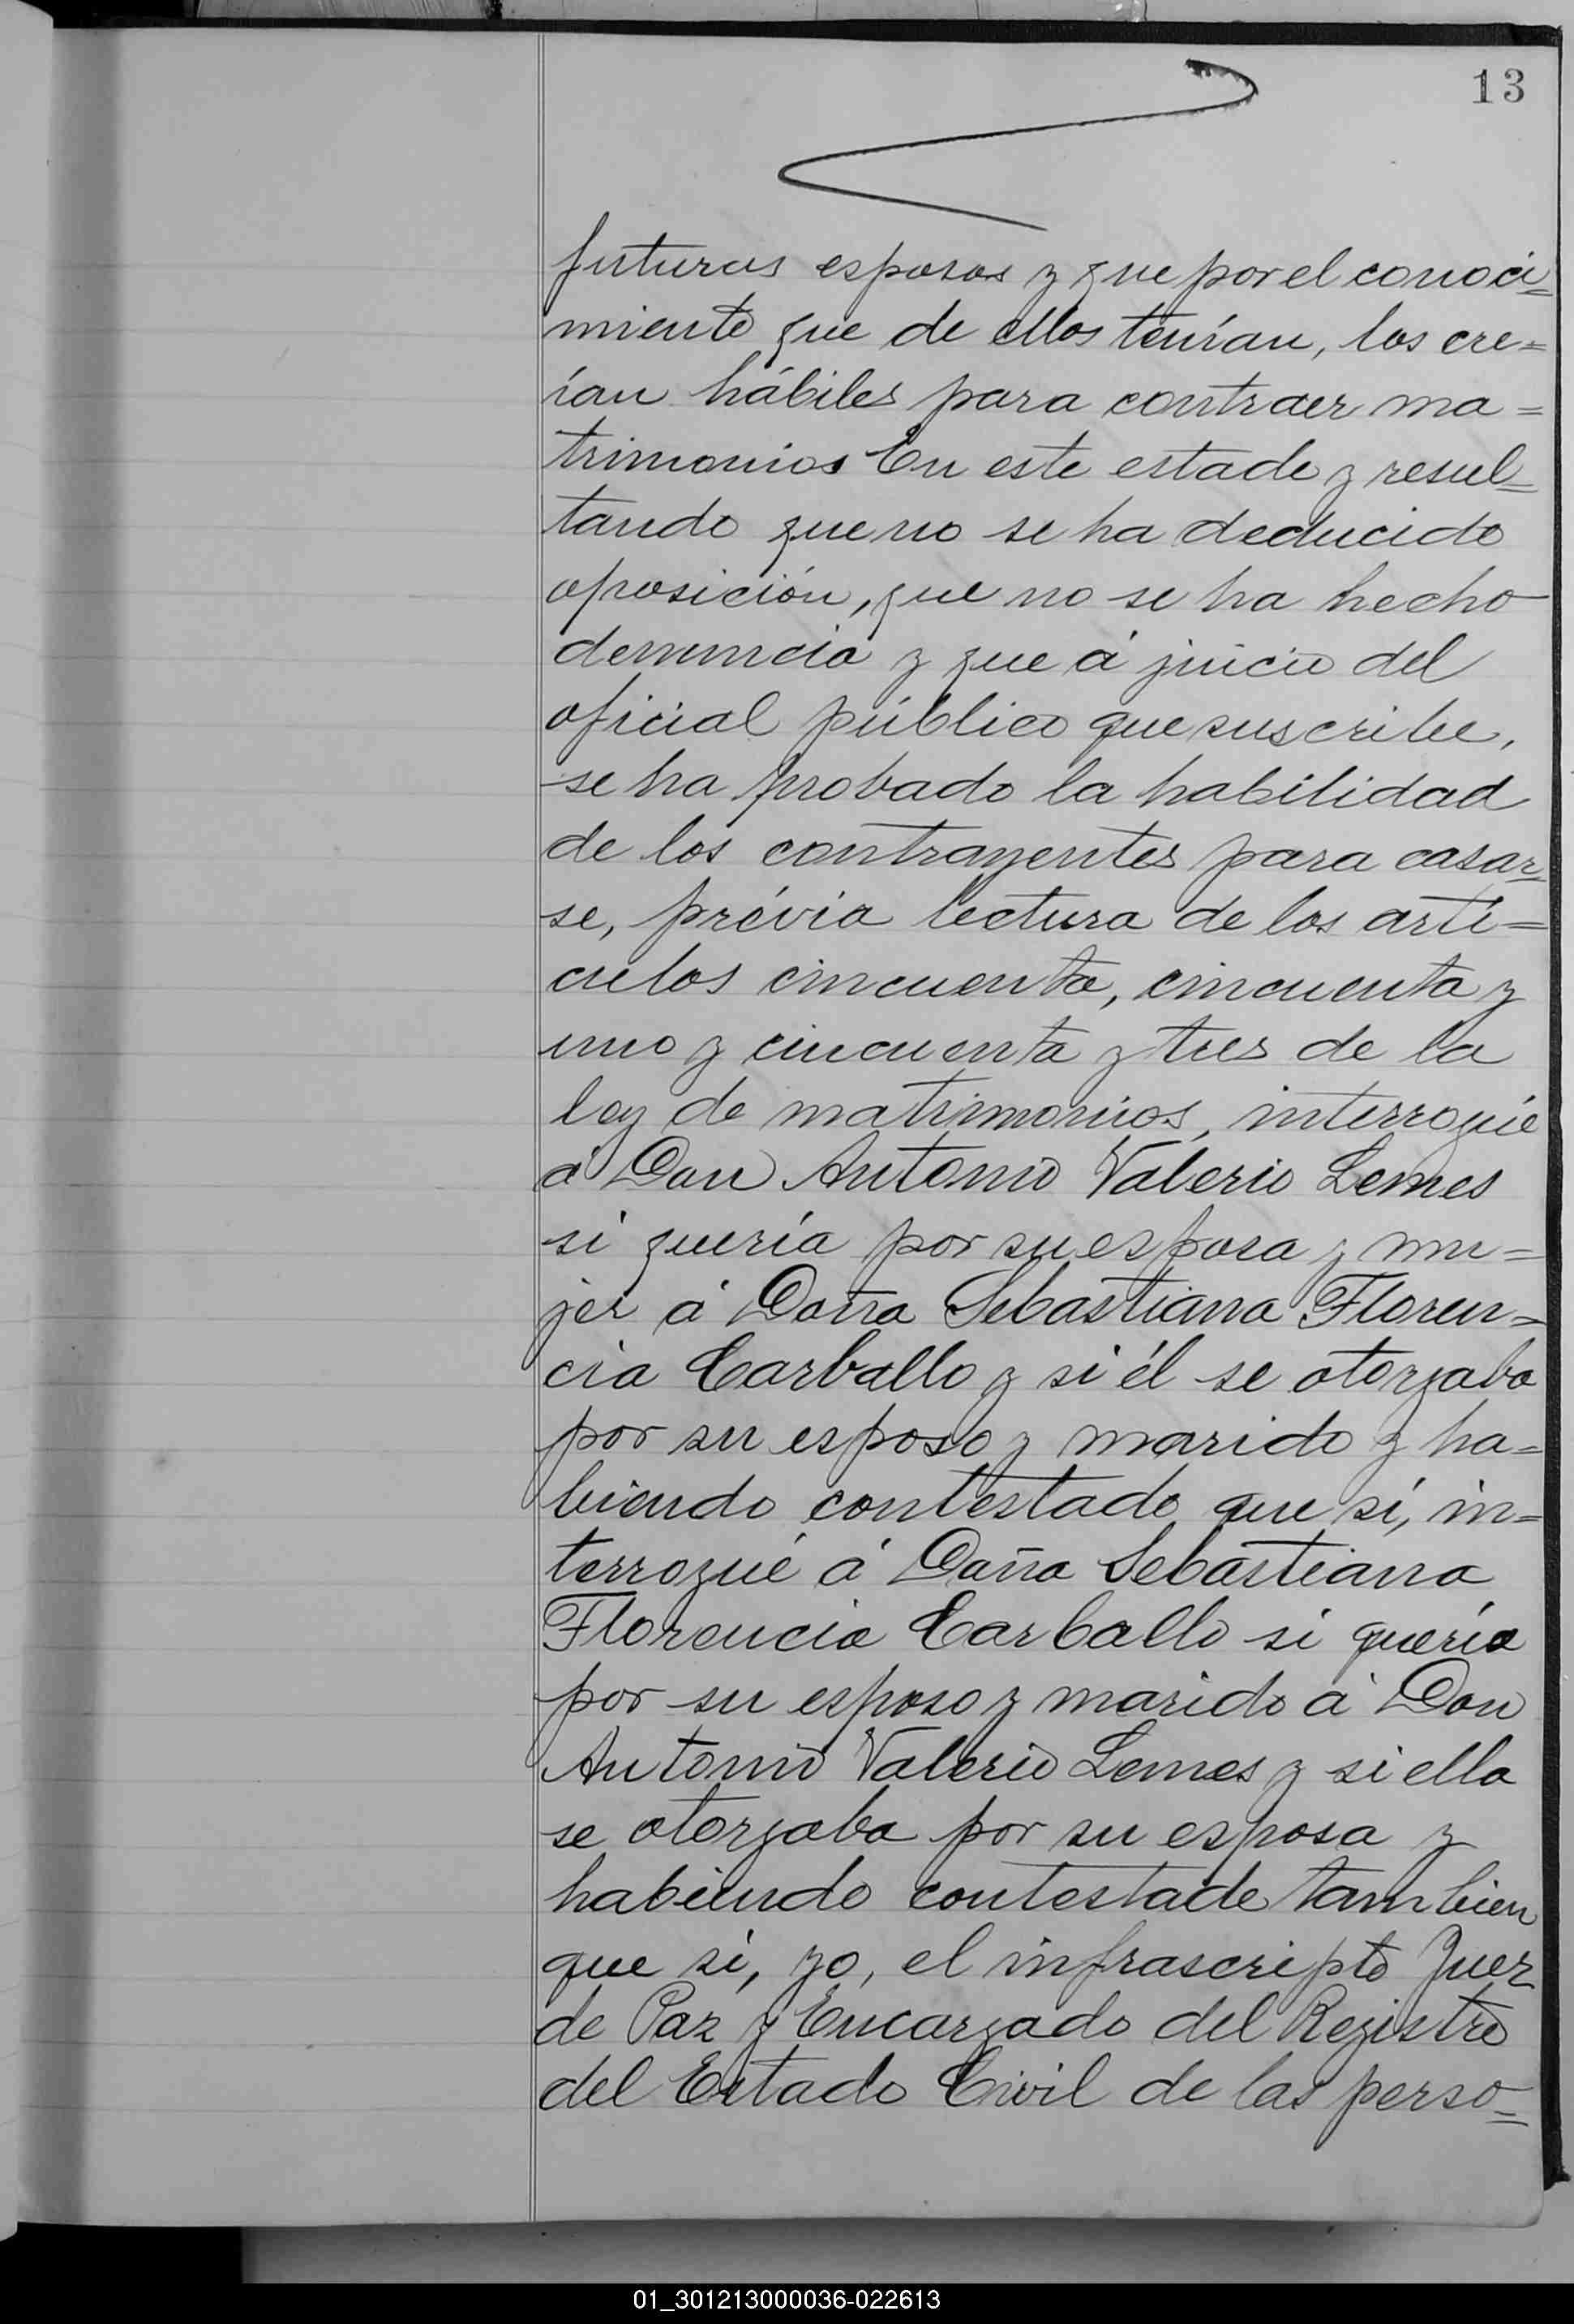 13
futuros esposos y que por el conoci=
miento que de ellos tenían, los cre=
ían hábiles para contraer ma=
trimonios En este estado y resul=
tando que no se ha deducido
oposición, que no se ha hecho
denuncia y que á juicio del
oficial público que suscribe,
se ha probado la habilidad
de los contrayentes para casar=
se, prévia lectura de los artí=
culos cincuenta, cincuenta y
uno y cincuenta y tres de la
ley de matrimonios, interrogué
á Don Antonio Valerio Lemes
si quería por su esposa y mu=
jer á Doña Sebastiana Floren=
cia Carballo y si él se otorgaba
por su esposo y marido y ha=
biendo contestado que sí, in=
terrogué á Doña Sebastiana
Florencia Carballo si quería
por su esposo y marido á Don
Antonio Valerio Lemes y si ella
se otorgaba por su esposa y
habiendo contestado tambien
que sí, yo, el infrascripto Juez
de Paz y Encargado del Registro
del Estado Civil de las perso=
01_301213000036-022613